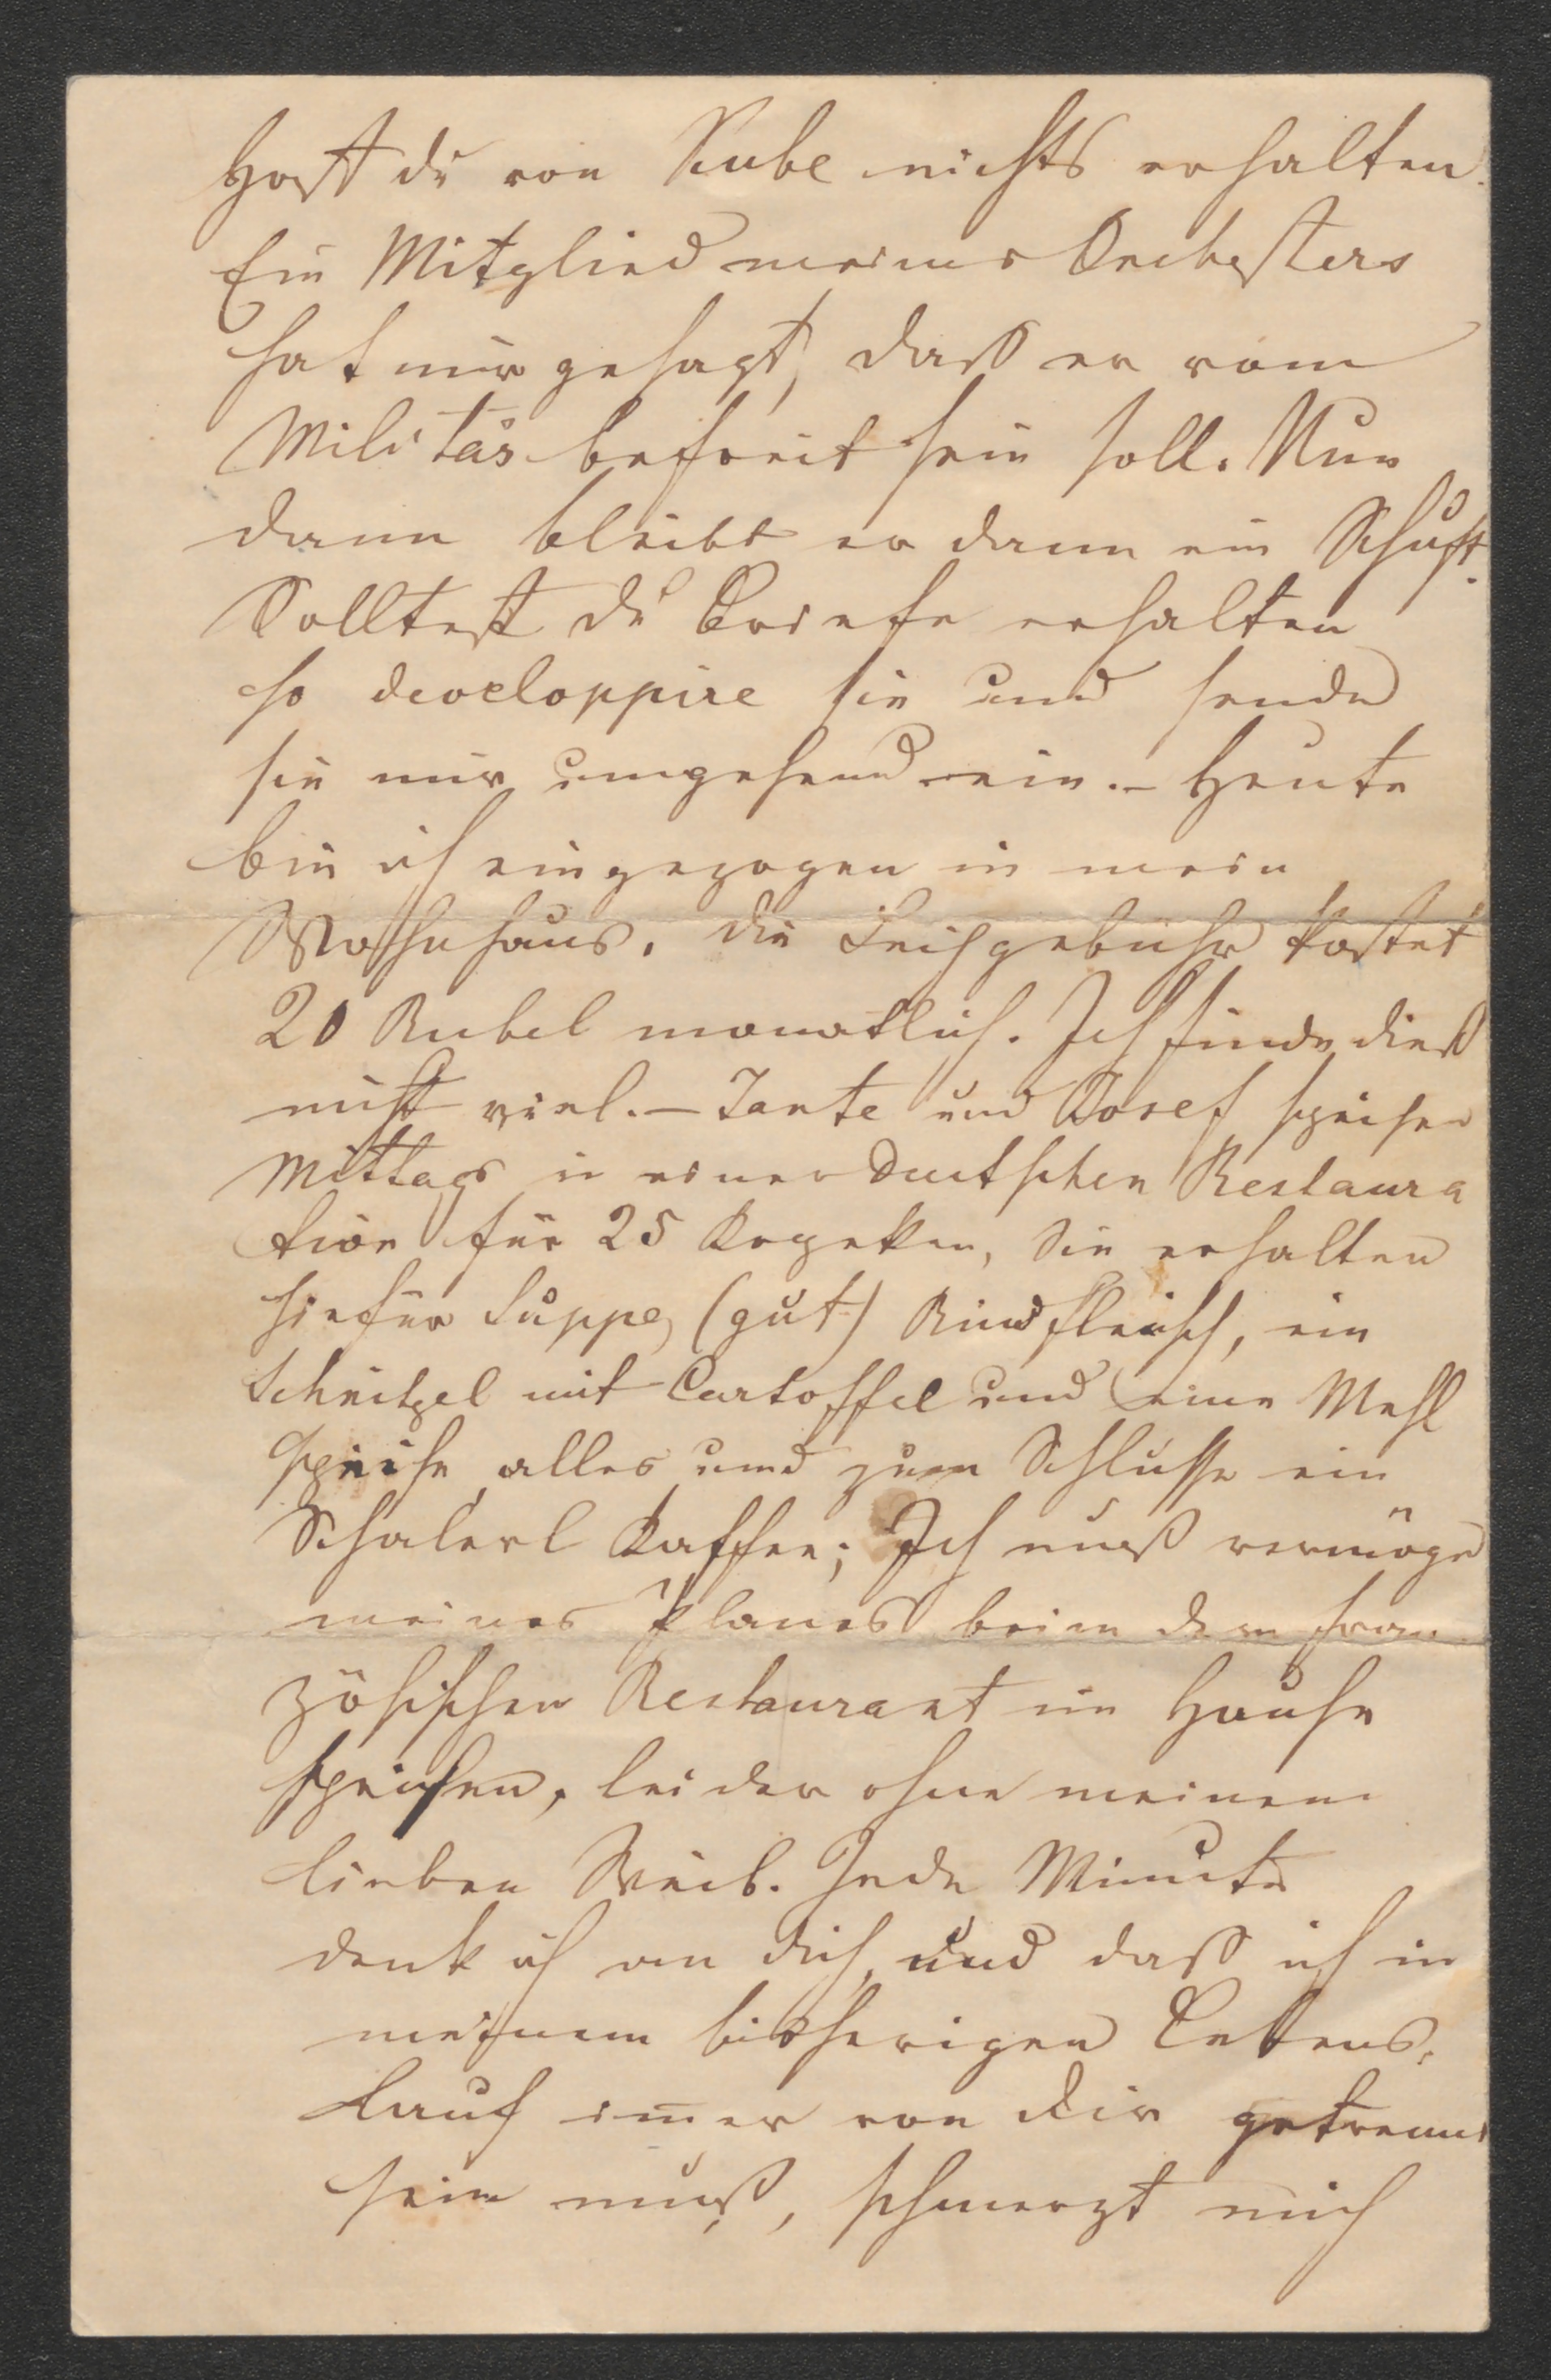 Hast du von Kube nichts erhalten.
Ein Mitglied meines Orchesters
hat mir gesagt, daß er vom
Militär befreit sein soll. Nun
dann bleibt er dann ein Schuft.
Solltest du Briefe erhalten
so developpire sie und sende
sie mir umgehend ein. – Heute
bin ich eingezogen in mein
Wohnhaus. Die Leihgebühr kostet
20 Rubel monatlich. Ich finde dieß
nicht viel. – Tante und Josef speisen
Mittags in einer deutschen Restaura
tion für 25 Kopeken, Sie erhalten
hiefür Suppe, (gut) Rindfleisch, ein
Schnitzel mit Cartoffel und eine Mehl
speise alles und zum Schlusse ein
Schalerl Kaffee; Ich muß vermöge
meines Planes beim dem fran
zösischen Restaurant im Hause
speisen, leider ohne meinem
lieben Weib. Jede Minute
denk ich an dich, und daß ich in
meinem bisherigen Lebens-
lauf im̅er von dir getrennt
sein muß, schmerzt mich